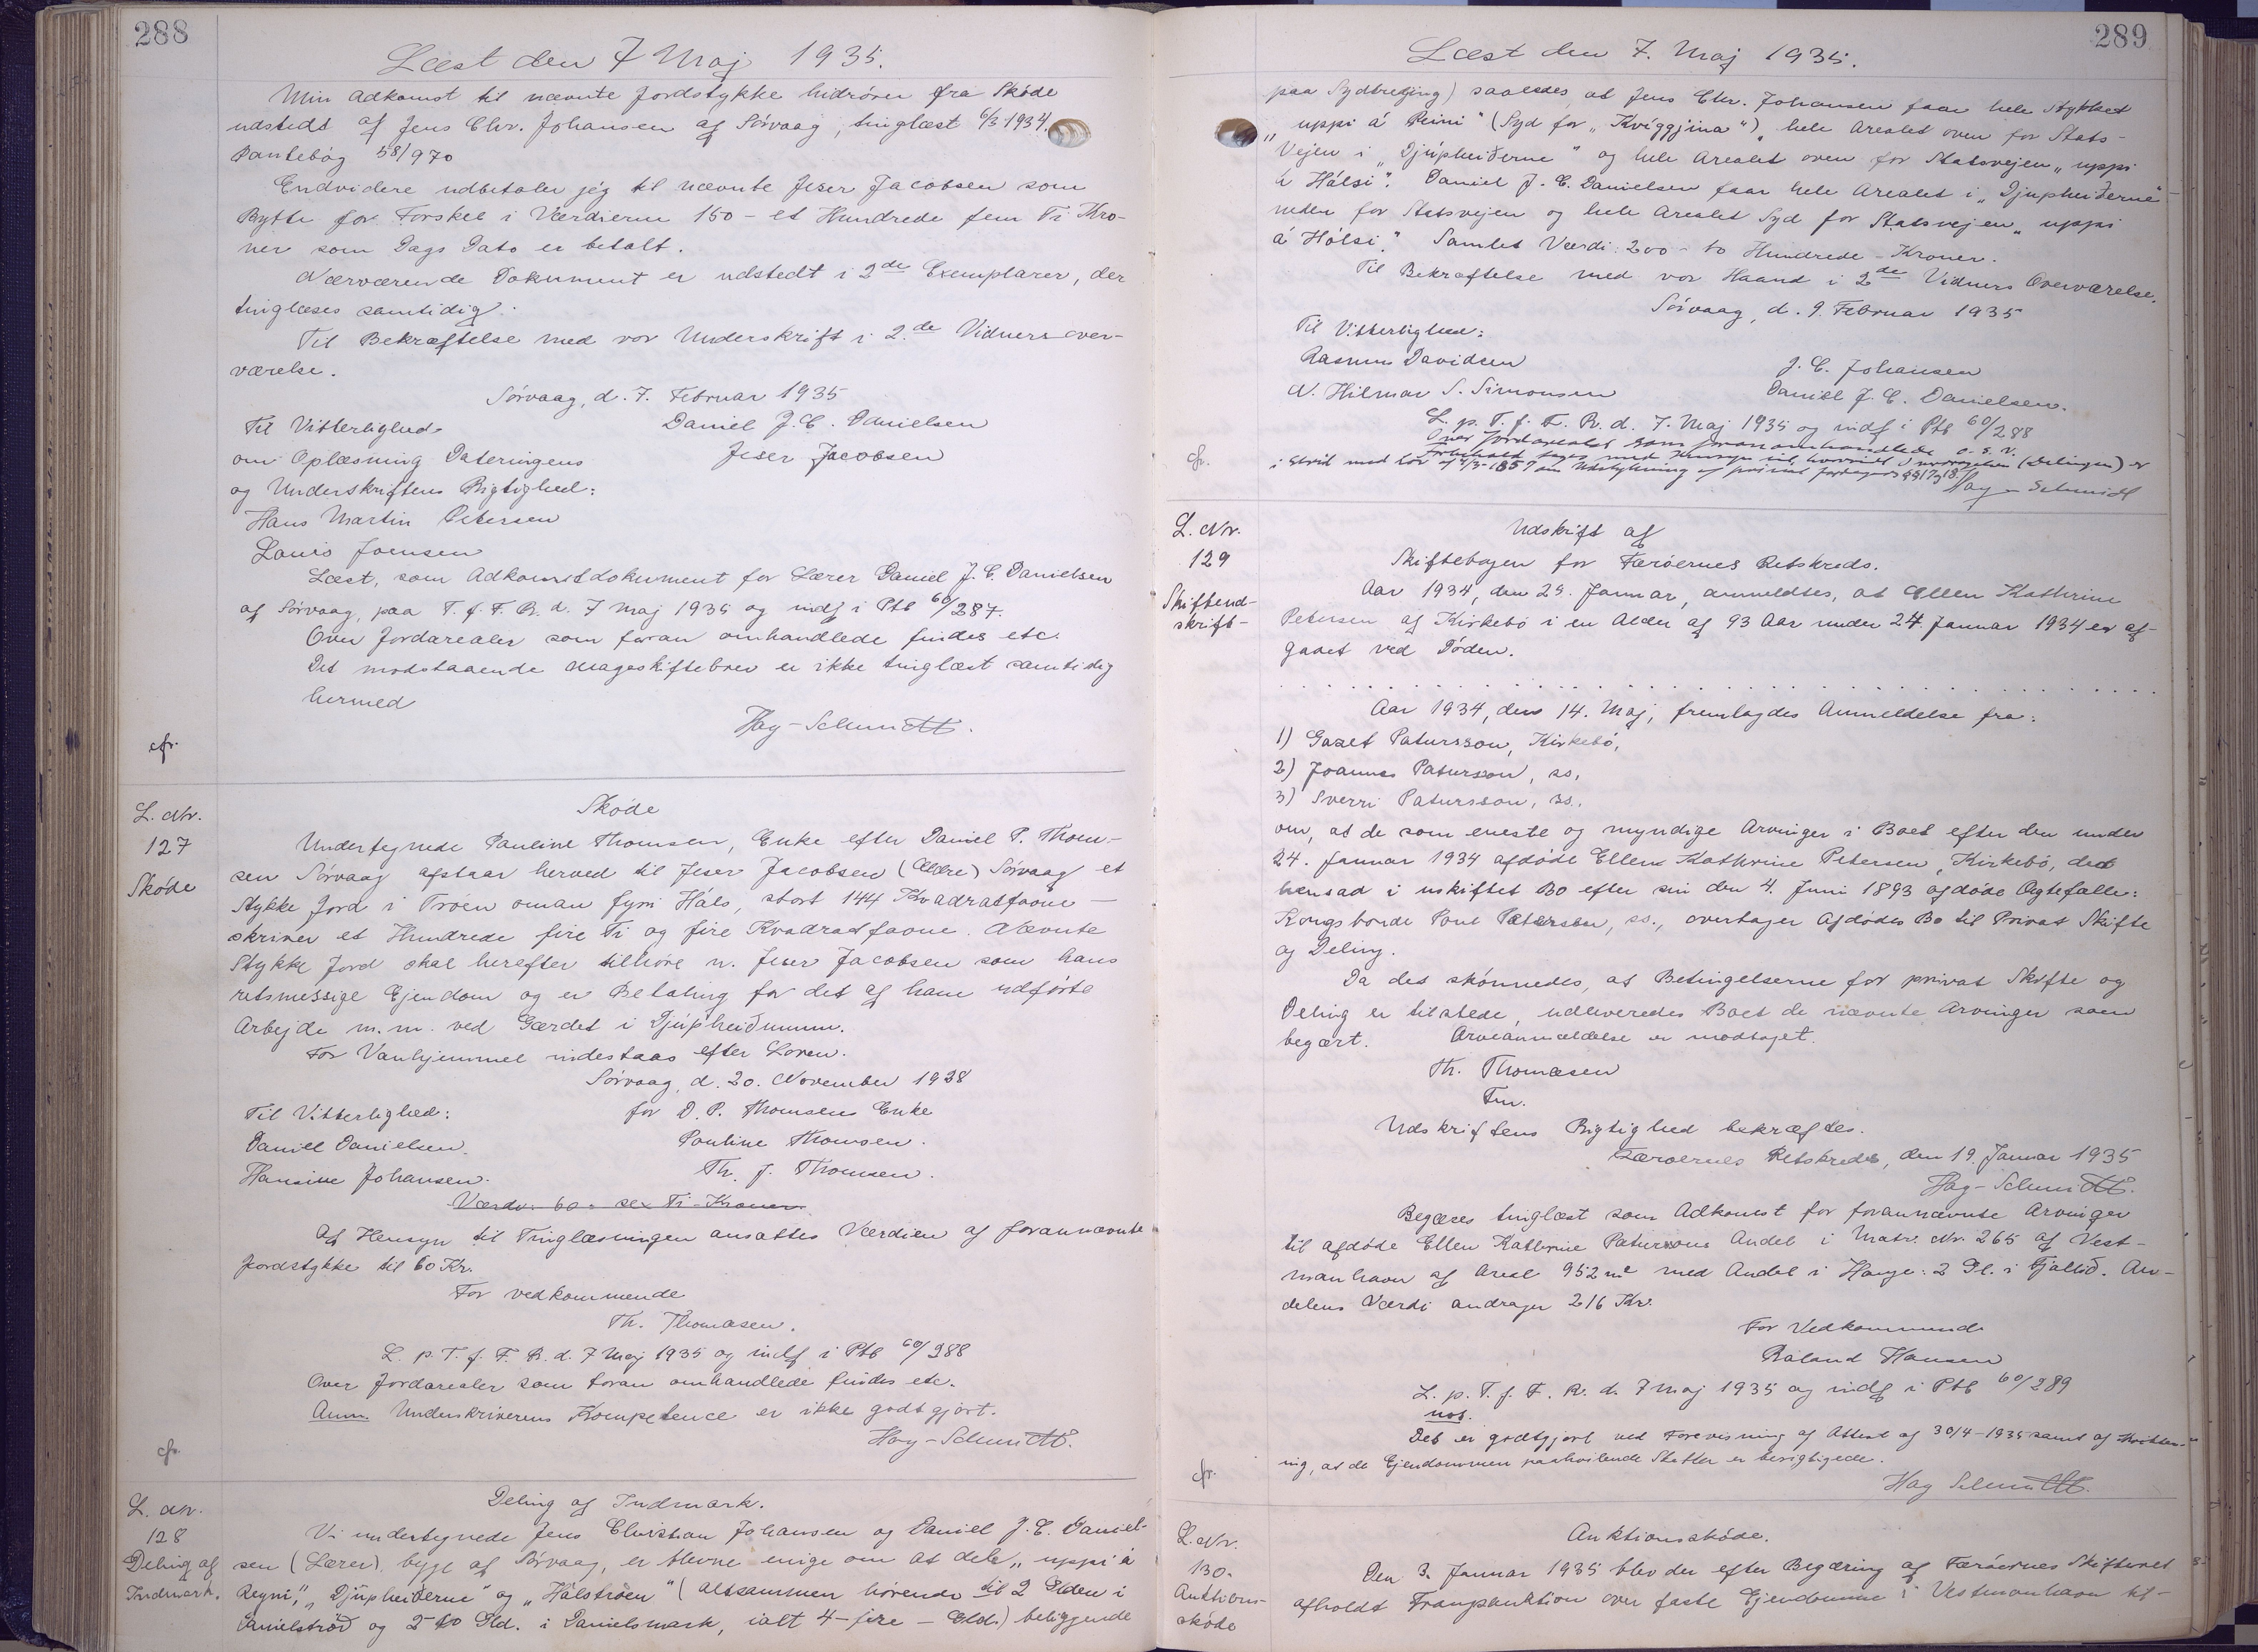 288
Læst den 7 Maj 1935.
Min Adkomst til nævnte Jordstykke hidrører fra Skøde
udstedt af Jens Chr. Johansen af Sørvaag, tinglæst 6/3 1934.
Pantebog 58/970
Endvidere udbetaler jeg til nævnte Jeser Jacobsen som
Bytte for Forskel i Værdierne 150 - et Hundrede fem Ti Kro-
ner som Dags Dato er betalt.
Nærværende Dokument er udstedt i 2de Exemplarer, der
tinglæses samtidig.
Til Bekræftelse med vor Underskrift i 2.de Vidners over-
værelse.
Sørvaag, d. 7. Februar 1935
Til Vitterlighed
Daniel J. C. Danielsen
om Oplæsning Dateringens
Jeser Jacobsen
og Underskriftens Rigtighed:
Hans Martin Petersen
Louis Joensen
Læst, som Adkomstdokument for Lærer Daniel J. C. Danielsen
af Sørvaag, paa T. f. F. R. d. 7 Maj 1935 og indf i Ptb 60/287.
Over Jordarealer som foran omhandlede findes etc.
Det modstaaende Mageskiftebrev er ikke tinglæst samtidig
hermed
Hay-Schmidt.
cfr.
L. Nr.
127
Skøde
Skøde
Undertegnede Pauline Thomsen, Enke efter Daniel P. Thom-
sen Sørvaag afstaar herved til Jeser Jacobsen (Ældre) Sørvaag et
Stykke Jord i Trøen oman fyri Háls, stort 144 Kvadratfavne -
skriver et Hundrede fire Ti og fire Kvadratfavne. Nævnte
Stykke Jord skal herefter tilhøre n. Jeser Jacobsen som hans
retsmessige Ejendom og er Betaling for det af ham udførte
Arbejde m. m. ved Gærdet i Djúpheiðunum.
For Vanhjemmel indestaas efter Loven.
Sørvaag, d. 20. November 1928
Til Vitterlighed:
for D. P. Thomsens Enke
Daniel Danielsen.
Pauline Thomsen.
Hansine Johansen.
Th. J. Thomsen.
Værdi 60 - sex Ti - Kroner
Af Hensyn til Tinglæsningen ansættes Værdien af forannævnte
Jordstykke til 60 Kr.
For vedkommende
Th. Thomasen.
L. p. T. f. F. R. d. 7 Maj 1935 og indf i Ptb 60/288
Over Jordarealer som foran omhandlede findes etc.
Anm. Underskriverens Kompetence er ikke godtgjort.
Hay-Schmidt.
cfr.
L. Nr.
128
Deling af
Indmark.
Deling af Indmark.
Vi undertegnede Jens Christian Johansen og Daniel J. C. Daniel-
sen (Lærer), begge af Sørvaag, er blevne enige om at dele „uppi á
Reyni", „Djúpheiðerne" og „Hálstrøen" (altsammen hørende til 2 Gylden i
Danielstrøð og 2 to Gld. i Danielsmark, ialt 4 - fire - Gld.) beliggende
289
Læst den 7. Maj 1935.
paa Sydbreging) saaledes, at Jens Chr. Johansen faar hele Stykket
„uppi á Reini" (Syd for „Kvíggjina"), hele Arealet oven for Stats-
Vejen i „Djúpheiðerne" og hele Arealet oven for Statsvejen „uppi
á Hálsi". Daniel J. C. Danielsen faar hele Arealet i „Djupheiðerne"
neden for Statsvejen og hele Arealet Syd for Statsvejen „uppi
á Hálsi." Samlet Værdi: 200 - to Hundrede - Kroner.
Til Bekræftelse med vor Haand i 2de Vidners Overværelse.
Sørvaag, d. 9. Februar 1935
Til Vitterlighed:
Rasmus Davidsen
J. C. Johansen
N. Hilmar S. Simonsen
Daniel J. C. Danielsen.
L. p. T. f. F. R. d. 7. Maj 1935 og indf i Ptb 60/288
Over Jordarealet som foran omhandlede o. s. v.
Forbehold tages med Hensyn til, hvorvidt (Delingen) er
i Strid med Lov af 4/3-1857 om Udstykning af privat Jordegods §§ 17 og 18.
Hay-Schmidt
cfr.
L. Nr.
129
Skifteud-
skrift-
Udskrift af
Skiftebogen for Færøernes Retskreds.
Aar 1934, den 25. Januar, anmeldtes, at Ellen Kathrine
Petersen af Kirkebø i en Alder af 93 Aar under 24. Januar 1934 er af-
gaaet ved Døden.
Aar 1934, den 14. Maj, fremlagdes Anmeldelse fra:
1) Gazet Patursson, Kirkebø,
2) Joannes Patursson, ss,
3) Sverri Patursson, ss.,
om, at de som eneste og myndige Arvinger i Boet efter den under
24. Januar 1934 afdøde Ellen Kathrine Petersen, Kirkebø, der
hensad i uskiftet Bo efter sin den 4. Juni 1893 afdøde Ægtefælle:
Kongsbonde Poul Patursson, ss., overtager Afdødes Bo til Privat Skifte
og Deling.
Da det skønnedes, at Betingelserne for privat Skifte og
Deling er tilstede, udleveredes Boet de nævnte Arvinger som
begært. Arveanmeldelse er modtaget.
Th. Thomasen
Fm.
Udskriftens Rigtighed bekræftes.
Færøernes Retskreds, den 19. Januar 1935
Hay-Schmidt.
Begæres tinglæst som Adkomst for forannævnte Arvinger
til afdøde Ellen Kathrine Paturssons Andel i Matr. Nr. 265 af Vest-
manhavn af Areal 952 m² med Andel i Hauge: 2 Gl. i Fjallið. An-
delens Værdi andrager 216 Kr.
For Vedkommende
Roland Hansen
L. p. T. f. F. R. d. 7 Maj 1935 og indf i Ptb 60/289
not.
Det er godtgjort ved Forevisning af Attest af 30/4-1935 samt af Kvitter-
ing, at de Ejendommen paahvilende Skatter er berigtigede.
Hay Schmidt.
cfr.
L. Nr.
130.
Auktions-
skøde
Auktionsskøde.
Den 3. Januar 1935 blev der efter Begæring af Færøernes Skifteret
afholdt Tvangsauktion over faste Ejendomme i Vestmanhavn til-